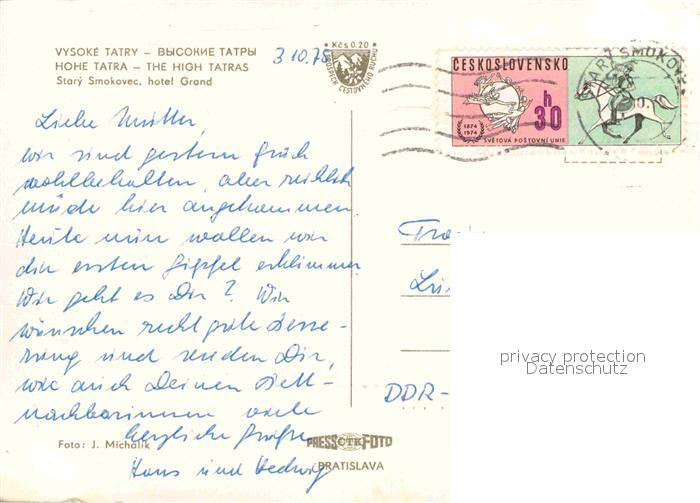 VYSOKÉ TATRY – ВЫСОКИЕ ТАТРЫ
HOHE TATRA – THE HIGH TATRAS
Starý Smokovec, hotel Grand
3.10.75
Kčs 0.20
ČESKOSLOVENSKO
h
30
1874
1974
SVĚTOVÁ POŠTOVNÍ UNIE
STARÝ SMOKOVEC
Liebe Mutter,
wir sind gestern früh
wohlbehalten, aber reichlich
müde hier angekommen.
Heute nun wollen wir
den ersten Gipfel erklimmen.
Wie geht es Dir? Wir
wünschen recht gute Besse-
rung und senden Dir,
wie auch Deinen Bett-
nachbarinnen viele
herzliche Grüße
Hans und Hedwig
DDR-
privacy protection
Datenschutz
Foto: J. Michalík
PRESSFOTO
ČTK
BRATISLAVA